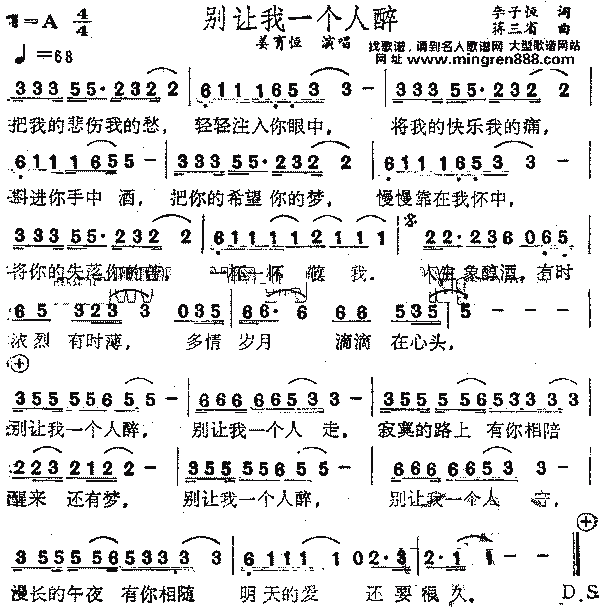 1=A 4/4 别让我一个人醉 李子恒 词
蒋三省 曲
姜育恒 演唱
♩=68
找歌谱，请到名人歌谱网 大型歌谱网站
网址 www.mingren888.com
333 55· 232 2 | 6111 1653 3 - | 333 55· 232 2 |
把我的悲伤我的愁， 轻轻注入你眼中， 将我的快乐我的痛，
6111 1655 - | 333 55· 232 2 | 6111 1653 3 - |
斟进你手中 酒， 把你的希望 你的梦， 慢慢靠在我怀中，
333 55· 232 2 | 6111 112111 | 22·236 065 |
将你的失落你的 一杯一杯 我． 人生象醇酒，有时
65 323 3 035 | 66· 6 66 535 | 5 - - - |
浓烈 有时薄， 多情 岁月 滴滴 在心头，
355 5565 5 - | 666 66533 - | 355 5565333 |
别让我一个人醉， 别让我一个人 走， 寂寞的路上 有你相陪
2223 2122 - | 355 5565 5 - | 666 6665 -
醒来 还有梦， 别让我一个人醉， 别让我一个人
355 5565333 | 6111 1 02·3 | 2·1 1 - - ‖
漫长的午夜 有你相随 明天的爱 还要很久． D.S.